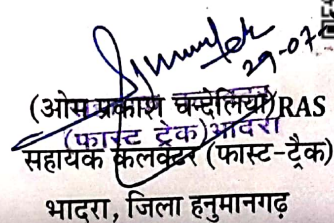 29-07
(ओम प्रकाश चन्देलिया)RAS
(फास्ट ट्रेक)भादरा
सहायक कलक्टर (फास्ट-ट्रैक)
भादरा, जिला हनुमानगढ़